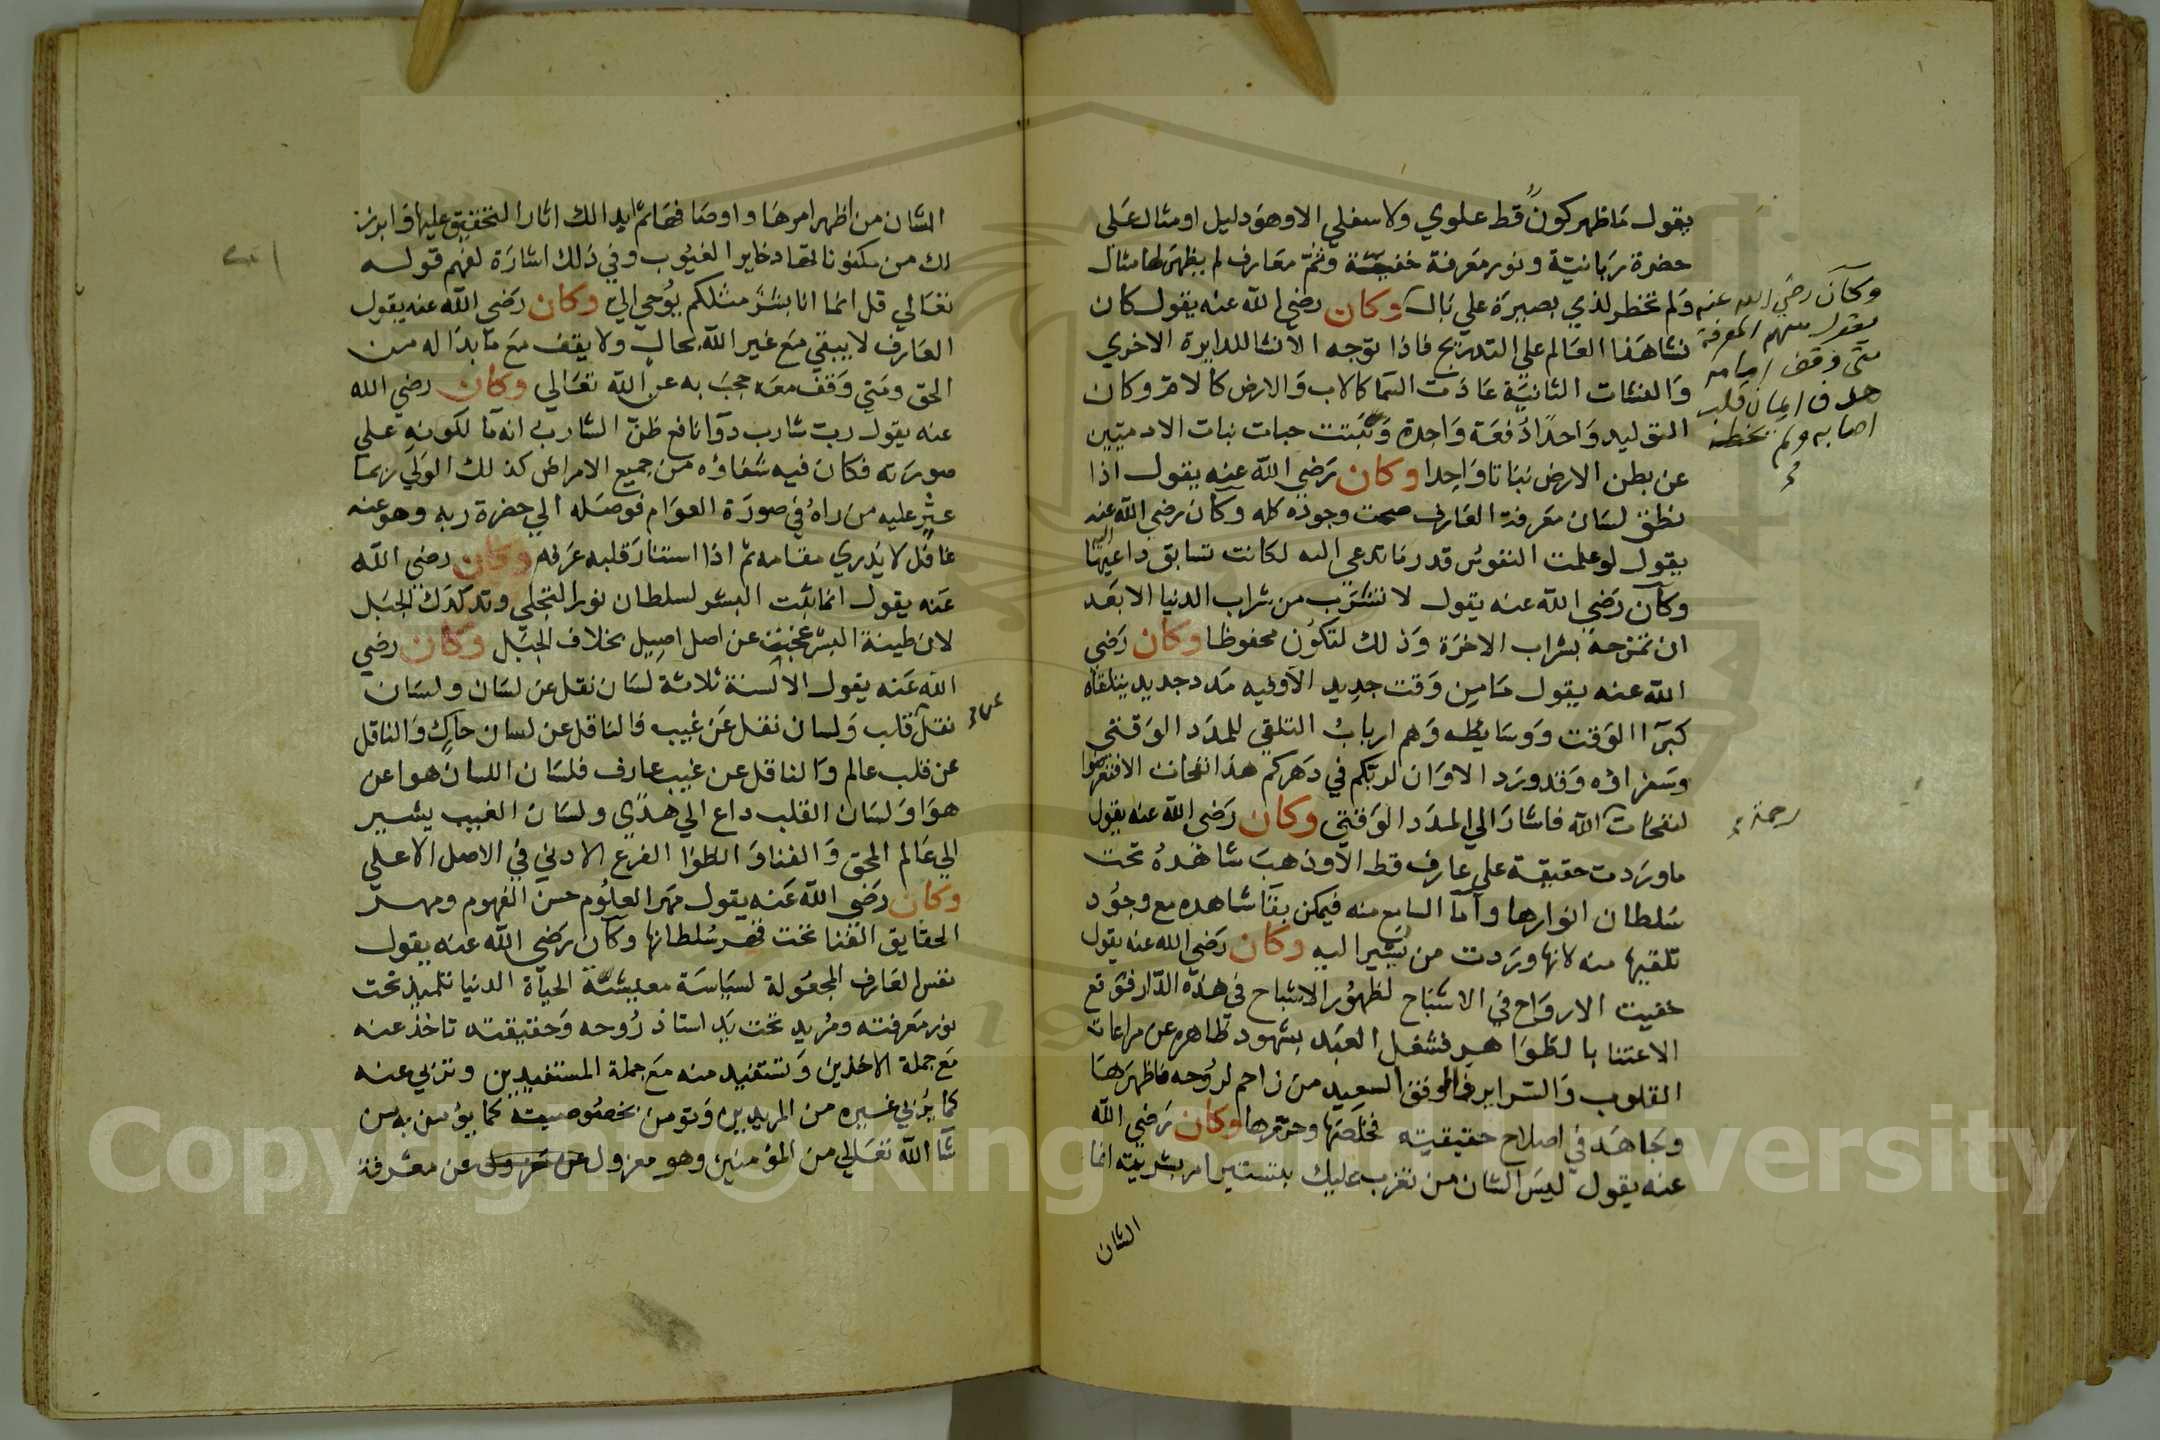 يقول ما ظهر كونٌ قط علوي ولا سفلي الا وهو دليل او مثال على
حضرة ربانية ونور معرفة خفية وثم معارف لم يظهر لها مثال
ولم تخطر لذي بصيرة علي بال وكان رضي الله عنه يقول كان
نشا هذا العالم علي التدريج فاذا توجه الانشا للدايرة الاخري
والنشات الثانية عادت السما كالاب والارض كالام وكان
التوليد واحدًا دفعة واحدة وتنبتت حبات نبات الادميين
عن بطن الارض نباتا واحدا وكان رضي الله عنه يقول اذا
نطق لسان معرفة العارف صمت وجوده كله وكان رضي الله عنه
يقول لو علمت النفوس قدر ما تدعي اليه لكانت تسابق داعيها اليه
وكان رضي الله عنه يقول لا تشرب من شراب الدنيا الا بعد
ان تمزجه بشراب الاخرة وذلك لتكون محفوظا وكان رضي
الله عنه يقول ما من وقت جديد الا وفيه مدد جديد يتلقاه
كبرا الوقت ووسايطه وهم ارباب التلقي للمدد الوقتي
وسفراؤه وقد ورد الا وان لربكم في دهركم هذا نفحات الا فتعرضوا
لنفحات الله فاشار الي المدد الوقتي وكان رضي الله عنه يقول
ما وردت حقيقة علي عارف قط الا وذهب شاهده تحت
سلطان انوارها واما السامع منه فيمكن بقا شاهده مع وجود
تلقيها منه لانها وردت من بشير اليه وكان رضي الله عنه يقول
خفيت الارواح في الاشباح لظهور الاشباح في هذه الدار فوقع
الاعتنا بالظواهر فشغل العبد بشهود ظاهره عن مراعات
القلوب والسراير فالموفق السعيد من زاحم لروحه فاظهرها
وجاهد في اصلاح حقيقيته فخلصها وحررها وكان رضي الله
عنه يقول ليس الشان من تغرب عليك بتستير امر بشريته انما
الشان
وكان رضي الله عنه
يقول سهم المعرفة
متي فوقف امامه
هدف ايمان قلب
اصابه ولم يخطه
رحمة
الشان من اظهر امرها واوصافها ثم ابدا لك اثار التحقيق عليها وابرز
لك من مكنوناتها دخاير الغيوب وفي ذلك اشارة لفهم قوله
تعالي قل انما انا بشر مثلكم يوحي الي وكان رضي الله عنه يقول
العارف لا يبقي مع غير الله بحال ولا يقف مع ما بدا له من
الحق ومتي وقف معه حجب به عن الله تعالي وكان رضي الله
عنه يقول رب شارب دوا نافع ظن الشارب انه ما لكونه علي
صورته فكان فيه شفاؤه من جميع الامراض كذلك الولي ربما
عثر عليه من راه في صورة العوام فوصله الي حضرة ربه وهو عنه
غافل لا يدري مقامه ثم اذا استنار قلبه عرفه وكان رضي الله
عنه يقول انما ثبت البشر لسلطان نور التجلي وتدكدك الجبل
لان طينة البشر عجنت عن اصل اصيل بخلاف الجبل وكان رضي
الله عنه يقول الالسنة ثلاثة لسان نقل عن لسان ولسان
نقل قلب ولسان نقل عن غيب فالناقل عن لسان حاك والناقل
عن
عن قلب عالم والناقل عن غيب عارف فلسان اللسان هوا عن
هوا ولسان القلب داع الي هدًي ولسان الغيب يشير
الي عالم المحق والفنا وانطوا الفرع الادني في الاصل الاعلي
وكان رضي الله عنه يقول مهر العلوم حسن الفهوم ومهر
الحقايق الفنا تحت قهر سلطانها وكان رضي الله عنه يقول
نفس العارف المجعولة لسياسة معيشة الحياة الدنيا تلميذ تحت
نور معرفته ومريد تحت يد استاذ روحه وحقيقته تاخذ عنه
مع جملة الاخذين وتستفيد منه مع جملة المستفيدين وتربي عنه
كما يربي غيره من المريدين وتومن بخصوصيته كما يؤمن به من
شا الله تعالي من المؤمنين وهو معزول عن معرفة
Copyright © King Saud University